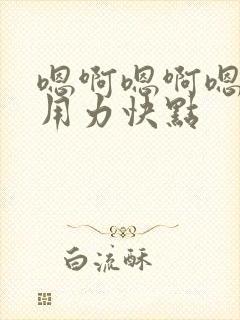 嗯啊嗯啊嗯
用力快點
白流酥